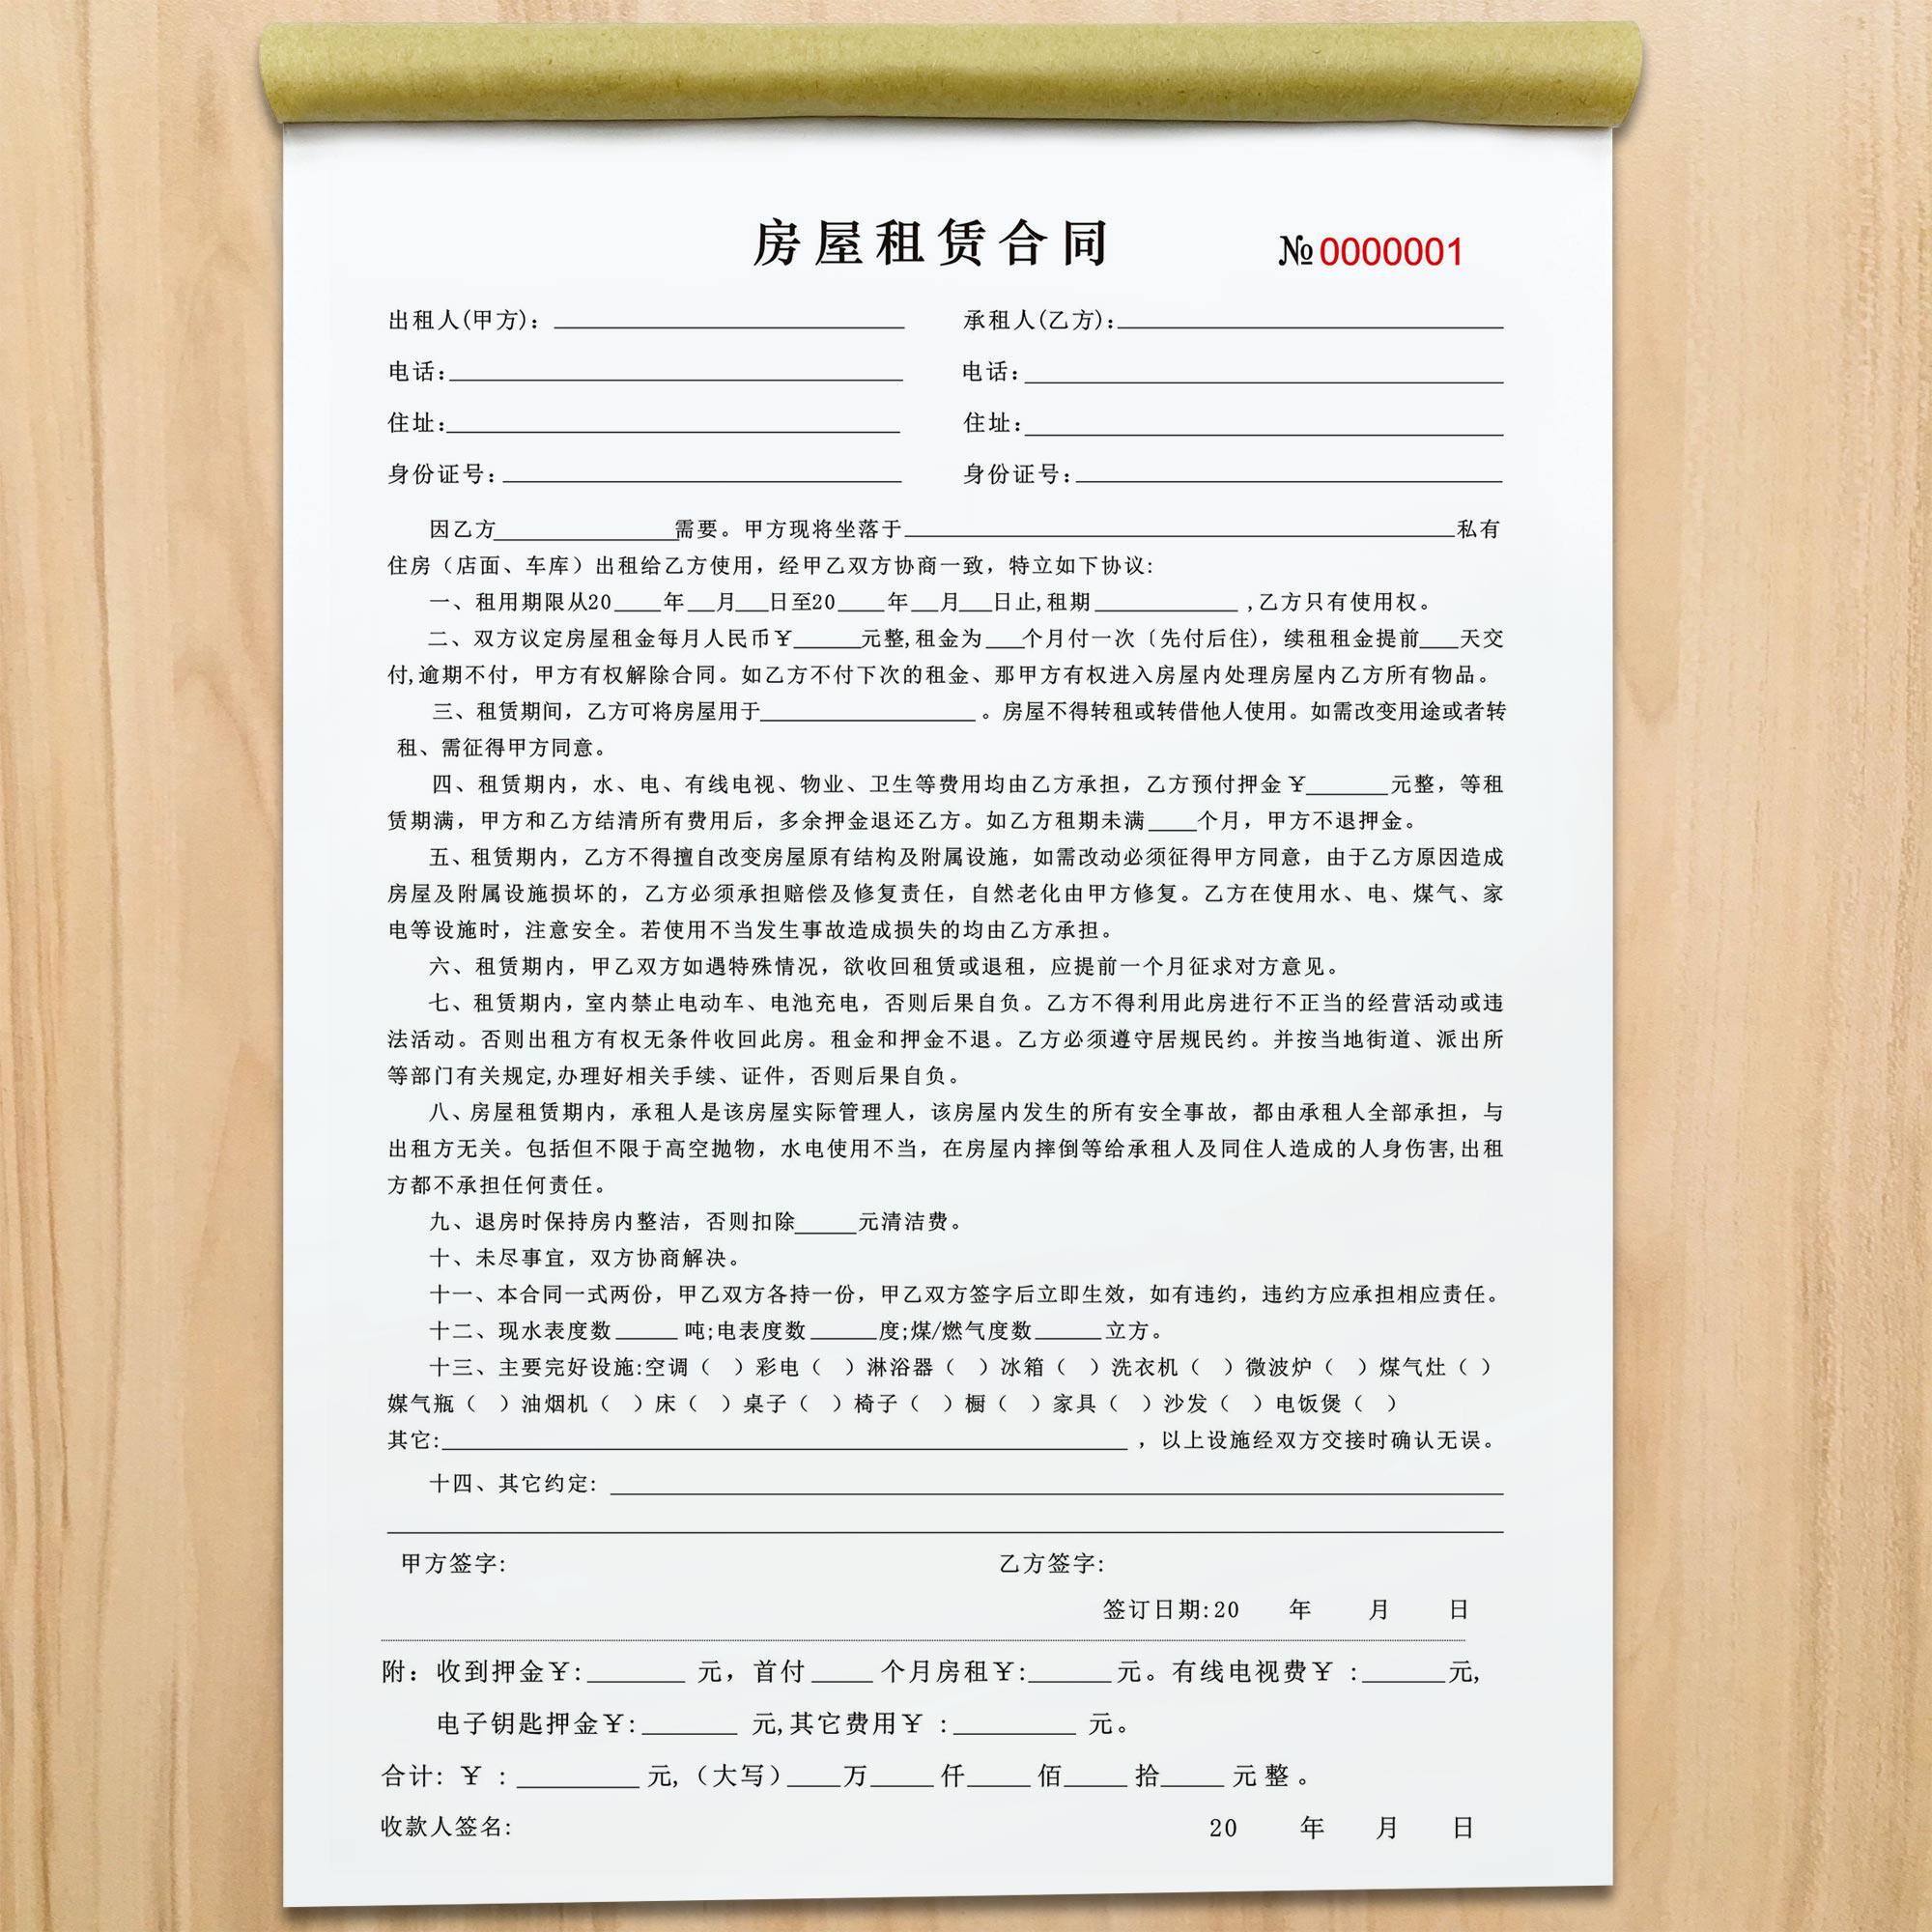 房屋租赁合同 №0000001
出租人(甲方)：____ 承租人(乙方)：____
电话：____ 电话：____
住址：____ 住址：____
身份证号：____ 身份证号：____
因乙方____需要。甲方现将坐落于____私有
住房（店面、车库）出租给乙方使用，经甲乙双方协商一致，特立如下协议:
一、租用期限从20____年__月__日至20____年__月__日止,租期____,乙方只有使用权。
二、双方议定房屋租金每月人民币￥____元整,租金为__个月付一次〔先付后住)，续租租金提前__天交
付,逾期不付，甲方有权解除合同。如乙方不付下次的租金、那甲方有权进入房屋内处理房屋内乙方所有物品。
三、租赁期间，乙方可将房屋用于____。房屋不得转租或转借他人使用。如需改变用途或者转
租、需征得甲方同意。
四、租赁期内，水、电、有线电视、物业、卫生等费用均由乙方承担，乙方预付押金￥____元整，等租
赁期满，甲方和乙方结清所有费用后，多余押金退还乙方。如乙方租期未满____个月，甲方不退押金。
五、租赁期内，乙方不得擅自改变房屋原有结构及附属设施，如需改动必须征得甲方同意，由于乙方原因造成
房屋及附属设施损坏的，乙方必须承担赔偿及修复责任，自然老化由甲方修复。乙方在使用水、电、煤气、家
电等设施时，注意安全。若使用不当发生事故造成损失的均由乙方承担。
六、租赁期内，甲乙双方如遇特殊情况，欲收回租赁或退租，应提前一个月征求对方意见。
七、租赁期内，室内禁止电动车、电池充电，否则后果自负。乙方不得利用此房进行不正当的经营活动或违
法活动。否则出租方有权无条件收回此房。租金和押金不退。乙方必须遵守居规民约。并按当地街道、派出所
等部门有关规定,办理好相关手续、证件，否则后果自负。
八、房屋租赁期内，承租人是该房屋实际管理人，该房屋内发生的所有安全事故，都由承租人全部承担，与
出租方无关。包括但不限于高空抛物，水电使用不当，在房屋内摔倒等给承租人及同住人造成的人身伤害,出租
方都不承担任何责任。
九、退房时保持房内整洁，否则扣除____元清洁费。
十、未尽事宜，双方协商解决。
十一、本合同一式两份，甲乙双方各持一份，甲乙双方签字后立即生效，如有违约，违约方应承担相应责任。
十二、现水表度数____吨;电表度数____度;煤/燃气度数____立方。
十三、主要完好设施:空调（ ）彩电（ ）淋浴器（ ）冰箱（ ）洗衣机（ ）微波炉（ ）煤气灶（ ）
媒气瓶（ ）油烟机（ ）床（ ）桌子（ ）椅子（ ）橱（ ）家具（ ）沙发（ ）电饭煲（ ）
其它:____，以上设施经双方交接时确认无误。
十四、其它约定:____
甲方签字: 乙方签字:
签订日期:20 年 月 日
附：收到押金￥:____元，首付____个月房租￥:____元。有线电视费￥ :____元,
电子钥匙押金￥:____元,其它费用￥ :____元。
合计: ￥ :____元,（大写）____万____仟____佰____拾____元整。
收款人签名: 20 年 月 日